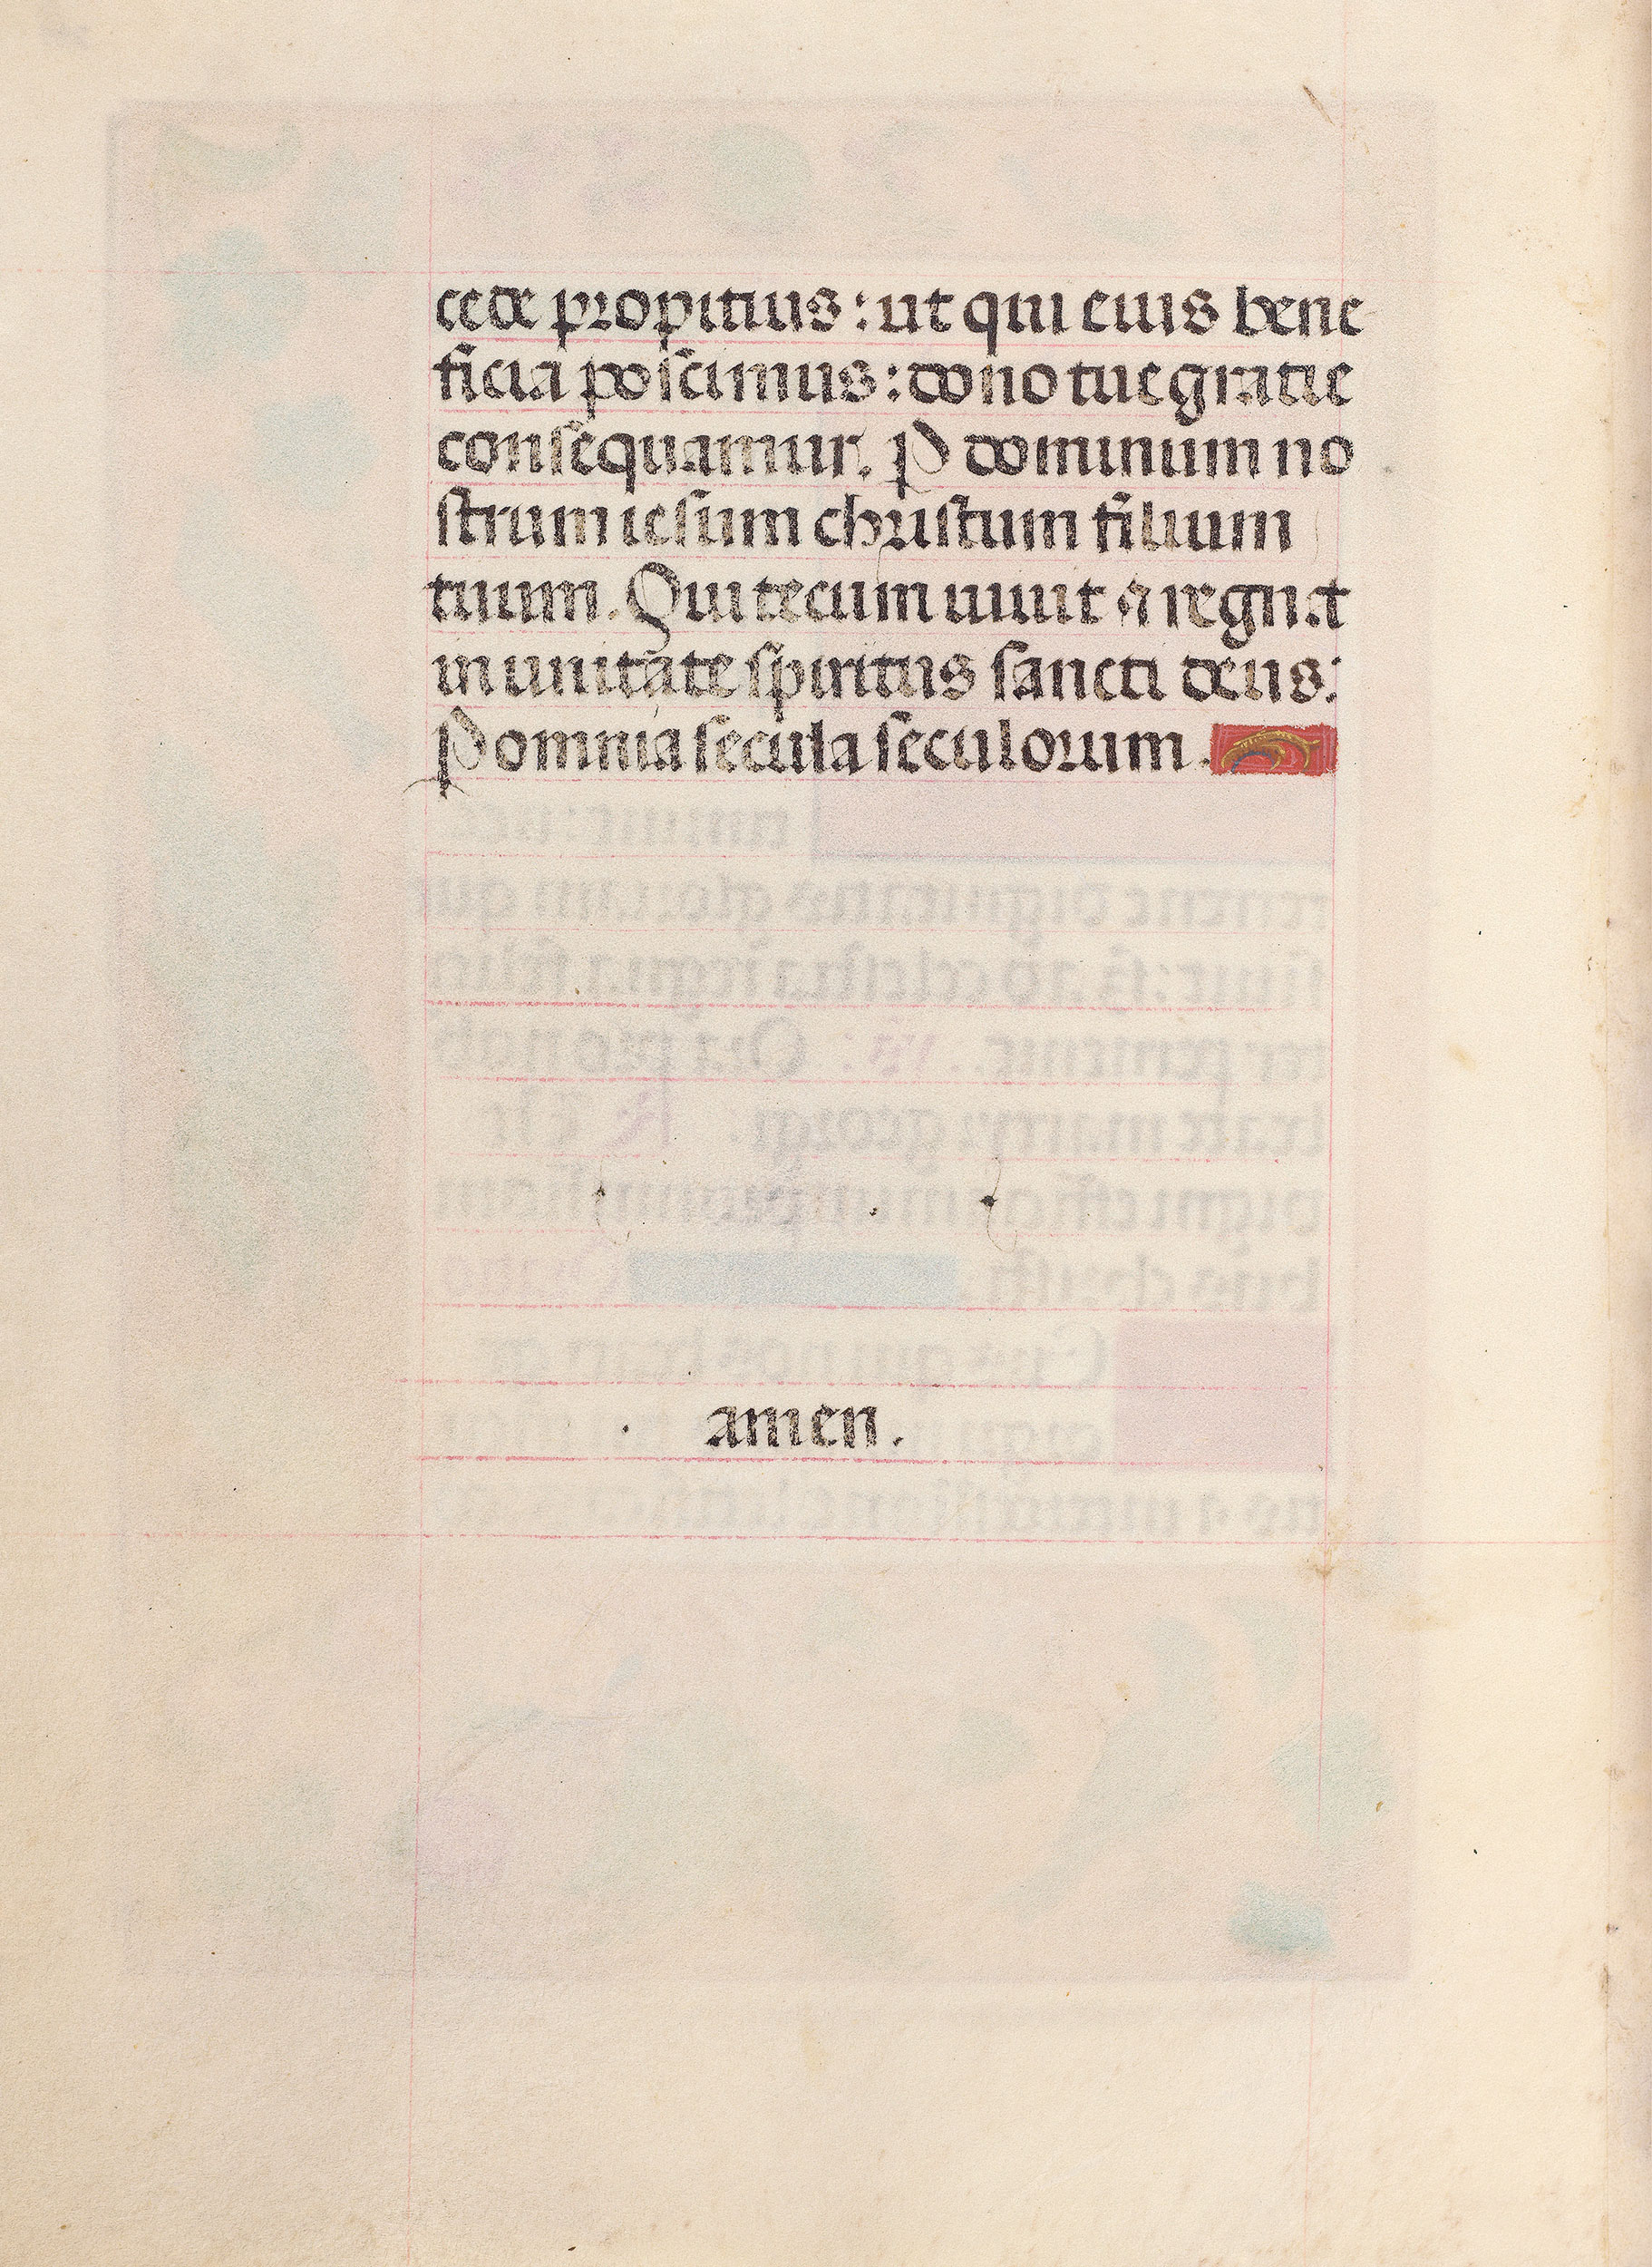 cede propitius: ut qui eius bene
ficia poscimus: dono tue gratie
consequamur. P dominum no
strum iesum christum filium
tuum. Qui tecum uiuit ⁊ regnat
in unitate spiritus sancti deus:
P omnia secula seculorum.
amen.